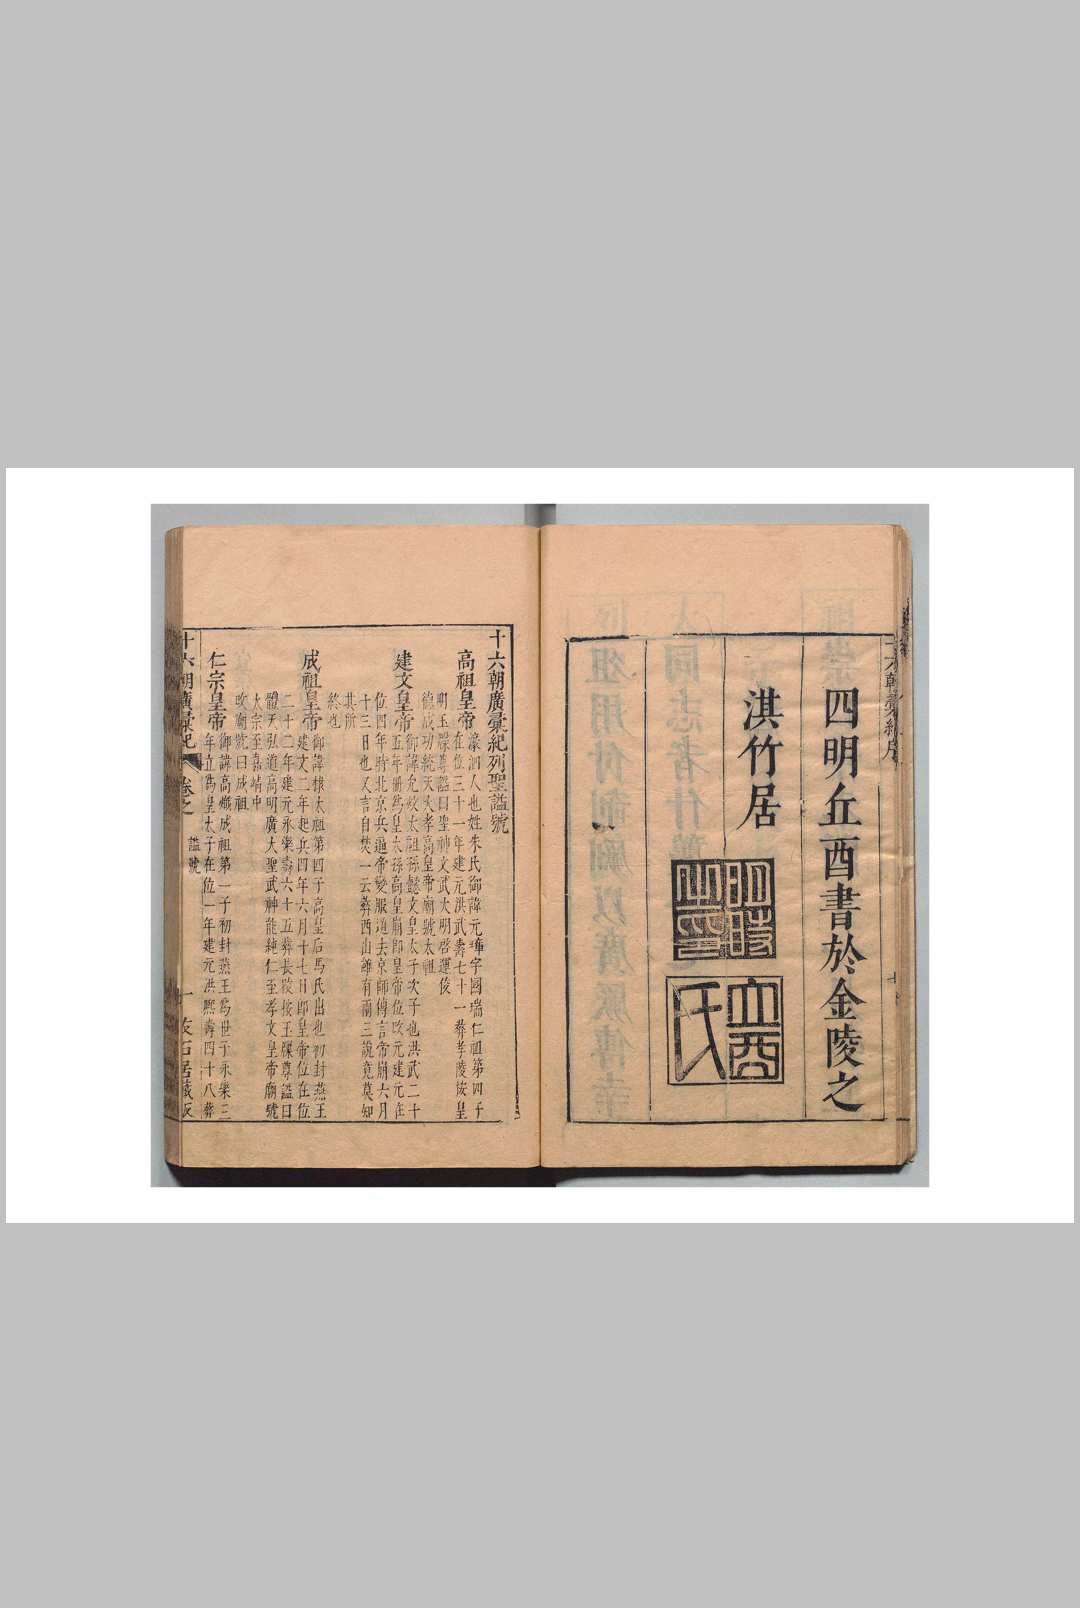 四明丘酉書於金陵之
淇竹居
十六朝廣彙紀列聖諡號
高祖皇帝
濠泗人也姓朱氏御諱元璋字國瑞仁祖第四子
在位三十一年建元洪武壽七十一葬孝陵按皇
明玉牒尊諡曰聖神文武大明啓運俊
德成功統天大孝高皇帝廟號太祖
建文皇帝
御諱允炆太祖孫懿文皇太子次子也洪武二十
五年冊為皇太孫高皇崩卽皇帝位改元建元在
位四年時北京兵逼帝變服遁去京師傳言帝崩六月
十三日也又言自焚一云葬西山雖有兩三說竟莫知
其所
終也
成祖皇帝
御諱棣太祖第四子高皇后馬氏出也初封燕王
建文二年起兵四年六月十七日卽皇帝位在位
二十二年建元永樂壽六十五葬長陵按玉牒尊諡曰
體天弘道高明廣大聖武神能純仁至孝文皇帝廟號
太宗至嘉靖中
改廟號曰成祖
仁宗皇帝
御諱高熾成祖第一子初封燕王為世子永樂二
年立為皇太子在位一年建元洪熙壽四十八葬
十六朝廣彙紀
卷之
諡號
一
友石居藏板